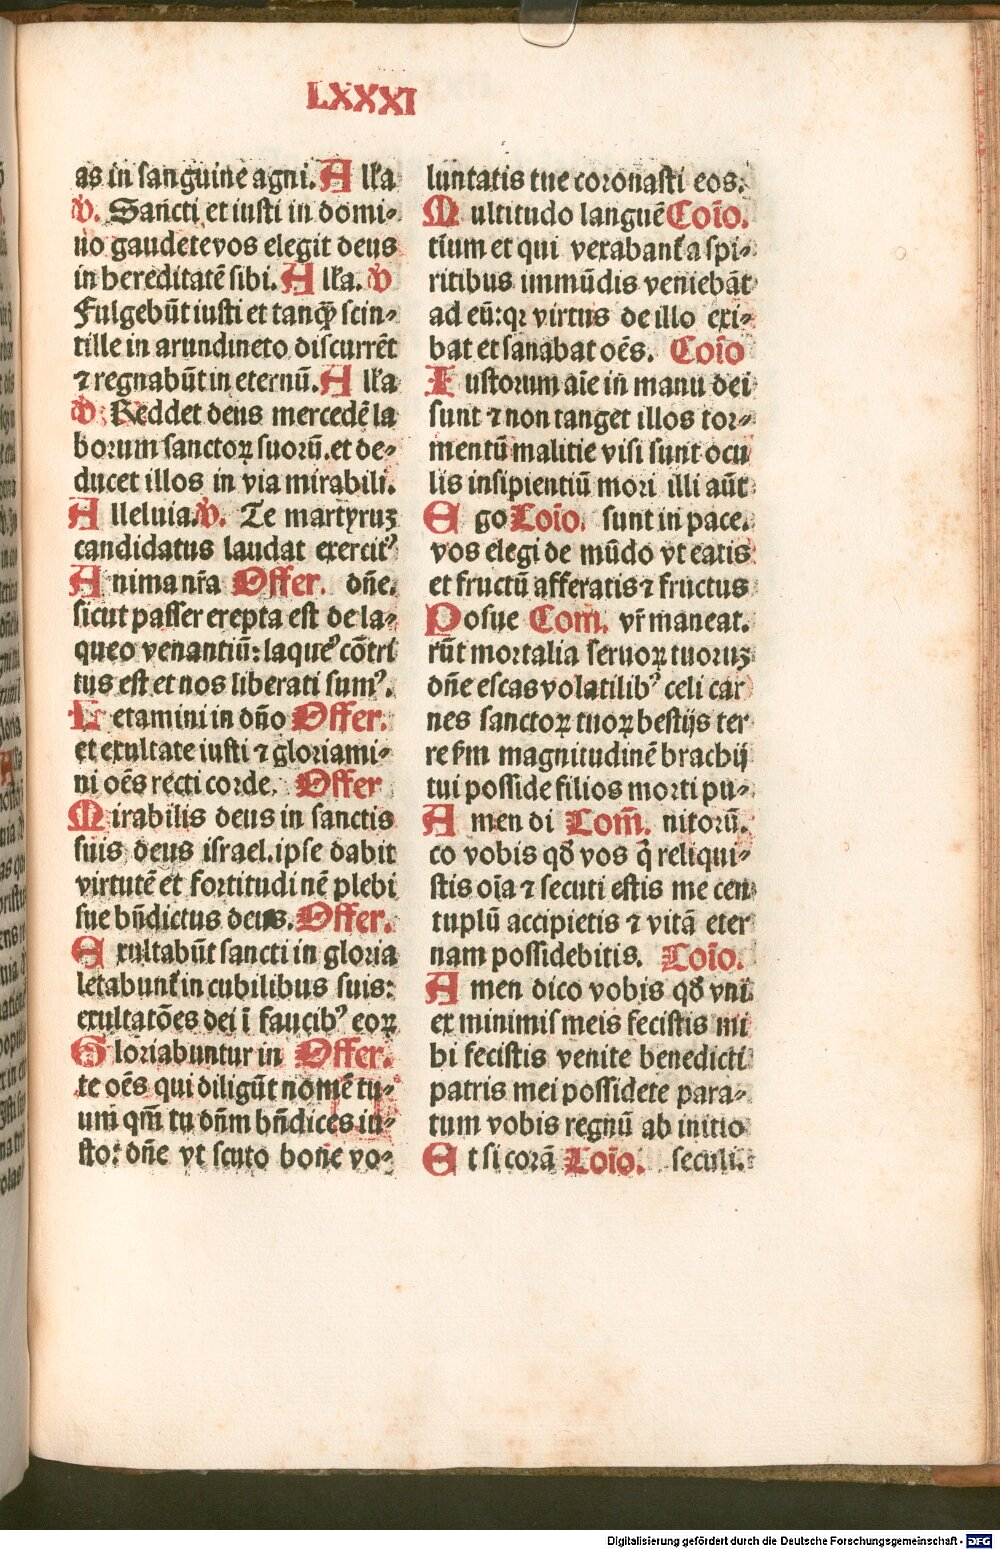 LXXXI
as in sanguine agni. All'a
V. Sancti et iusti in domi⸗
no gaudete vos elegit deus
in hereditatē sibi. All'a. V
Fulgebūt iusti et tanqꝫ scin⸗
tille in arundineto discurrēt
⁊ regnabūt in eternū. All'a
V. Reddet deus mercedē la
borum sanctoꝝ suorū. et de⸗
ducet illos in via mirabili.
Alleluia. V. Te martyruꝫ
candidatus laudat exercit⁹
Anima nr̄a Offer. dn̄e.
sicut passer erepta est de la⸗
queo venantiū: laque⁹ cōtri
tus est et nos liberati sum⁹.
Letamini in dn̄o Offer.
et exultate iusti ⁊ gloriami⸗
ni oēs recti corde. Offer
Mirabilis deus in sanctis
suis deus israel. ipse dabit
virtutē et fortitudinē plebi
sue bn̄dictus deus. Offer.
Exultabūt sancti in gloria
letabunt' in cubilibus suis:
exultatōes dei ī faucib⁹ eoꝝ
Gloriabuntur in Offer.
te oēs qui diligūt nomē tu⸗
um̄ qm̄ tu dn̄m bn̄dices iu⸗
sto: dn̄e vt scuto bone vo⸗
luntatis tue coronasti eos.
Multitudo languē Coīo.
tium et qui vexabant' a spi⸗
ritibus immūdis veniebāt
ad eū: qꝛ virtus de illo exi⸗
bat et sanabat oēs. Coīo
Iustorum aīe in manu dei
sunt ⁊ non tanget illos tor⸗
mentū malitie visi sunt ocu
lis insipientiū mori illi aūt
Ego Coīo. sunt in pace.
vos elegi de mūdo vt eatis
et fructū afferatis ⁊ fructus
Posue Com̄. vr̄ maneat.
rūt mortalia seruoꝝ tuoruꝫ
dn̄e escas volatilib⁹ celi car
nes sanctoꝝ tuoꝝ bestijs ter
re scd'm magnitudinē brachij
tui posside filios morti pu⸗
Amen di Com̄. nitorū.
co vobis qd̄ vos q̄ reliqui⸗
stis oīa ⁊ secuti estis me cen
tuplū accipietis ⁊ vitā eter
nam possidebitis. Coīo.
Amen dico vobis qd̄ vni
ex minimis meis fecistis mi
bi fecistis venite benedicti
patris mei possidete para⸗
tum vobis regnū ab initio
Et si corā Coīo. seculi.
Digitalisierung gefördert durch die Deutsche Forschungsgemeinschaft - DFG